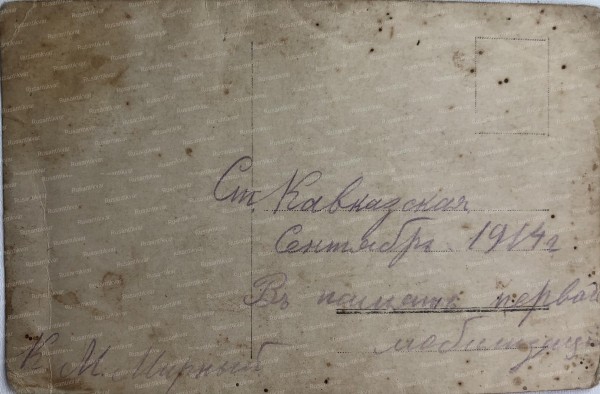 Ст. Кавказская
Сентябрь 1914 г
Въ память первой
мобилизац
К М. Мирный